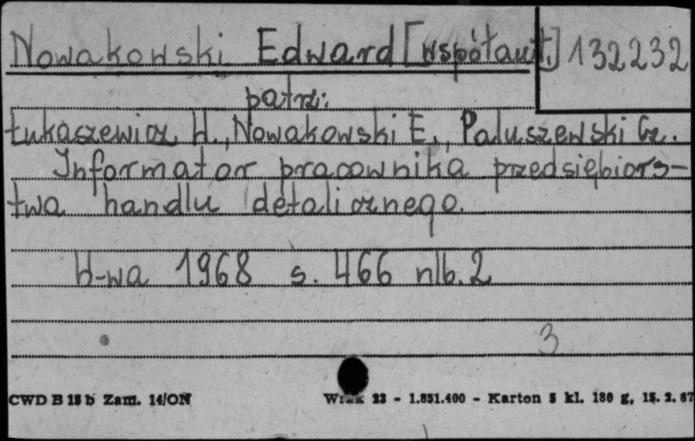 Nowakowski Edward [współaut.] 132232
patrz:
Łukaszewicz H., Nowakowski E., Paluszewski Cz.
Informator pracownika przedsiębiors-
twa handlu detalicznego.
W-wa 1968 s. 466 nlb. 2
3
CWD B 15 b Zam. 14/ON - 1.851.400 - Karton 5 kl. 180 g, 15. 2. 67